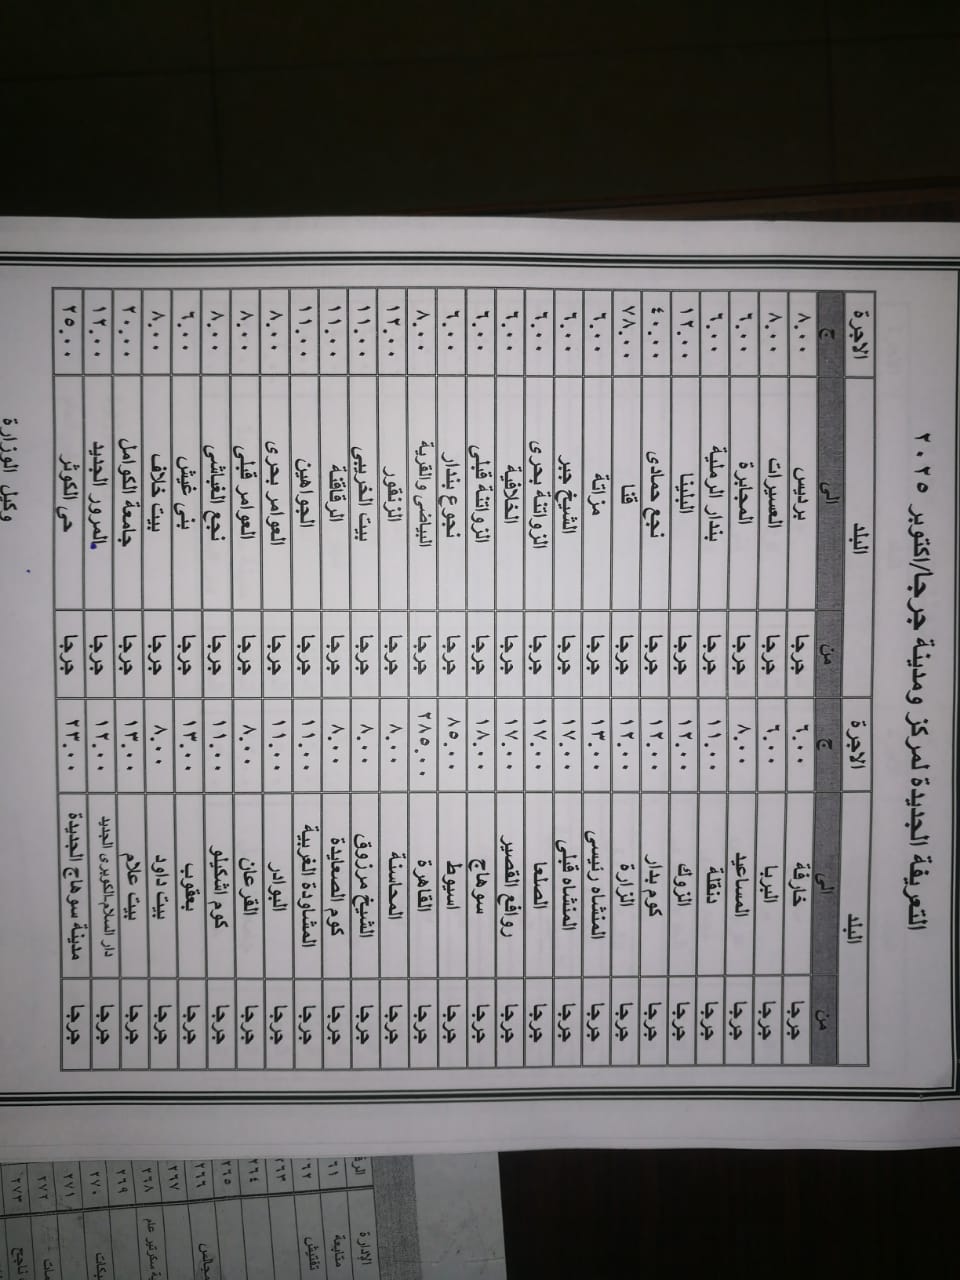 التعريفة الجديدة لمركز ومدينة جرجا/اكتوبر ٢٠٢٥
البلد الاجرة البلد الاجرة
من الى ج من الى ج
جرجا خارفة ٦.٠٠ جرجا برديس ٨.٠٠
جرجا البربا ٦.٠٠ جرجا العسيرات ٨.٠٠
جرجا المساعيد ٨.٠٠ جرجا المجابرة ٦.٠٠
جرجا دنقلة ١١.٠٠ جرجا بندار الرملية ٦.٠٠
جرجا الزوك ١٢.٠٠ جرجا البلينا ١٢.٠٠
جرجا كوم بدار ١٢.٠٠ جرجا نجع حمادى ٤٠.٠٠
جرجا الزارة ١٢.٠٠ جرجا قنا ٧٨.٠٠
جرجا المنشاه رئيسى ١٣.٠٠ جرجا مزاتة ٦.٠٠
جرجا المنشاه قبلى ١٧.٠٠ جرجا الشيخ جبر ٦.٠٠
جرجا الصلعا ١٧.٠٠ جرجا الزواتنة بحرى ٦.٠٠
جرجا روافع القصير ١٧.٠٠ جرجا الخلافية ٦.٠٠
جرجا سوهاج ١٨.٠٠ جرجا الزواتنة قبلى ٦.٠٠
جرجا اسيوط ٨٥.٠٠ جرجا نجوع بندار ٦.٠٠
جرجا القاهرة ٢٨٥.٠٠ جرجا البياضى والقرية ٨.٠٠
جرجا المحاسنة ٨.٠٠ جرجا الزنقور ١٢.٠٠
جرجا الشيخ مرزوق ٨.٠٠ جرجا بيت الخريبى ١١.٠٠
جرجا كوم الصعايدة ٨.٠٠ جرجا الرقاقنة ١١.٠٠
جرجا المشاودة الغربية ١١.٠٠ جرجا الجواهين ١١.٠٠
جرجا البوادر ١١.٠٠ جرجا العوامر بحرى ٨.٠٠
جرجا القرعان ٨.٠٠ جرجا العوامر قبلى ٨.٠٠
جرجا كوم اشكيلو ١١.٠٠ جرجا نجع الغباشى ٨.٠٠
جرجا يعقوب ١٣.٠٠ جرجا بنى عيش ٦.٠٠
جرجا بيت داود ٨.٠٠ جرجا بيت خلاف ٨.٠٠
جرجا بيت علام ١٣.٠٠ جرجا جامعة الكوامل ٢٠.٠٠
جرجا دار السلام.الكوبرى الجديد ١٢.٠٠ جرجا المرور الجديد ١٢.٠٠
جرجا مدينة سوهاج الجديدة ٢٣.٠٠ جرجا حى الكوثر ٢٥.٠٠
وكيل الوزارة
الإدارة
متابعة
تفتيش
٢٦٦ مجالس
٢٦٧
٢٦٨
٢٦٩
٢٧٠
٢٧١
٢٧٢
٢٧٣